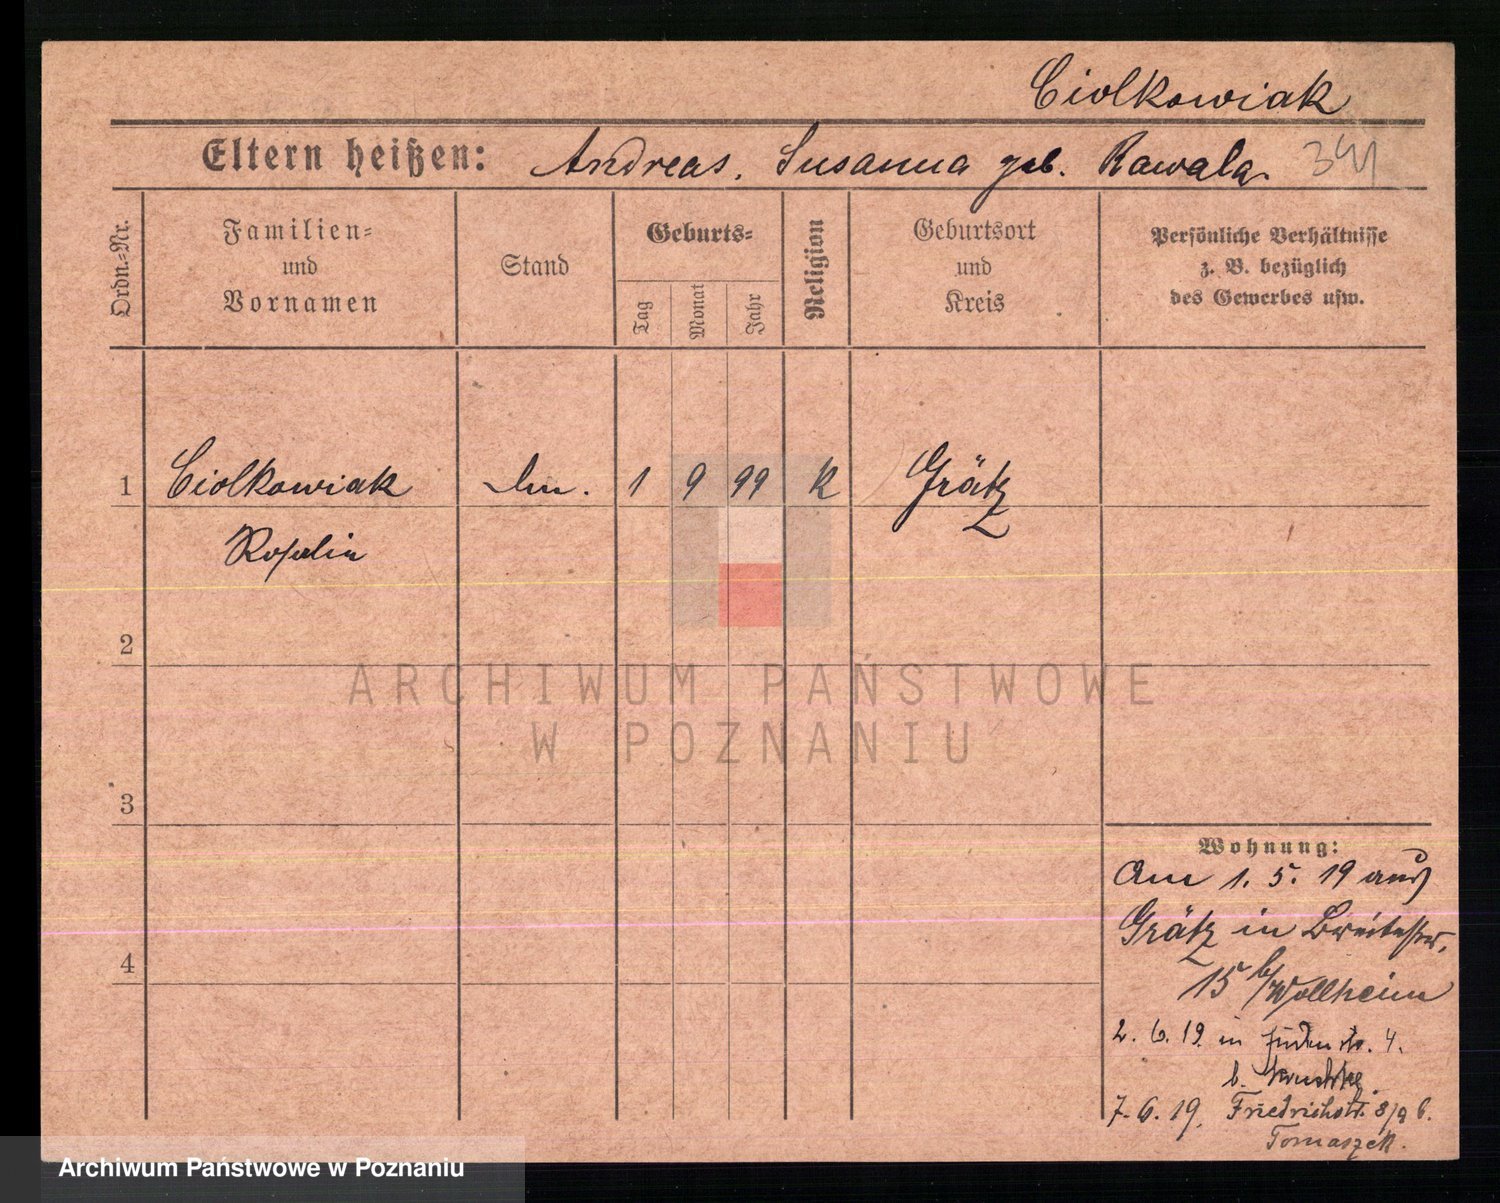 Ciolkowiak
Eltern heißen: Andreas, Susanna geb. Rawala. 341
Ordn.=Nr.
Familien=
und
Vornamen
Stand
Geburts=
Tag
Monat
Jahr
Religion
Geburtsort
und
Kreis
Persönliche Verhältnisse
z. B. bezüglich
des Gewerbes usw.
1 Ciolkowiak 1 9 99 K Grätz
Rosalie
2
ARCHIWUM PAŃSTWOWE
W POZNANIU
3
4
Wohnung:
Am 1. 5. 19 aus
Grätz in Breitestr.
15 b/Wollheim
2. 6. 19. in Judenstr. 4.
b.
7. 6. 19. Friedrichstr. 8/9 b.
Tomaszek.
Archiwum Państwowe w Poznaniu